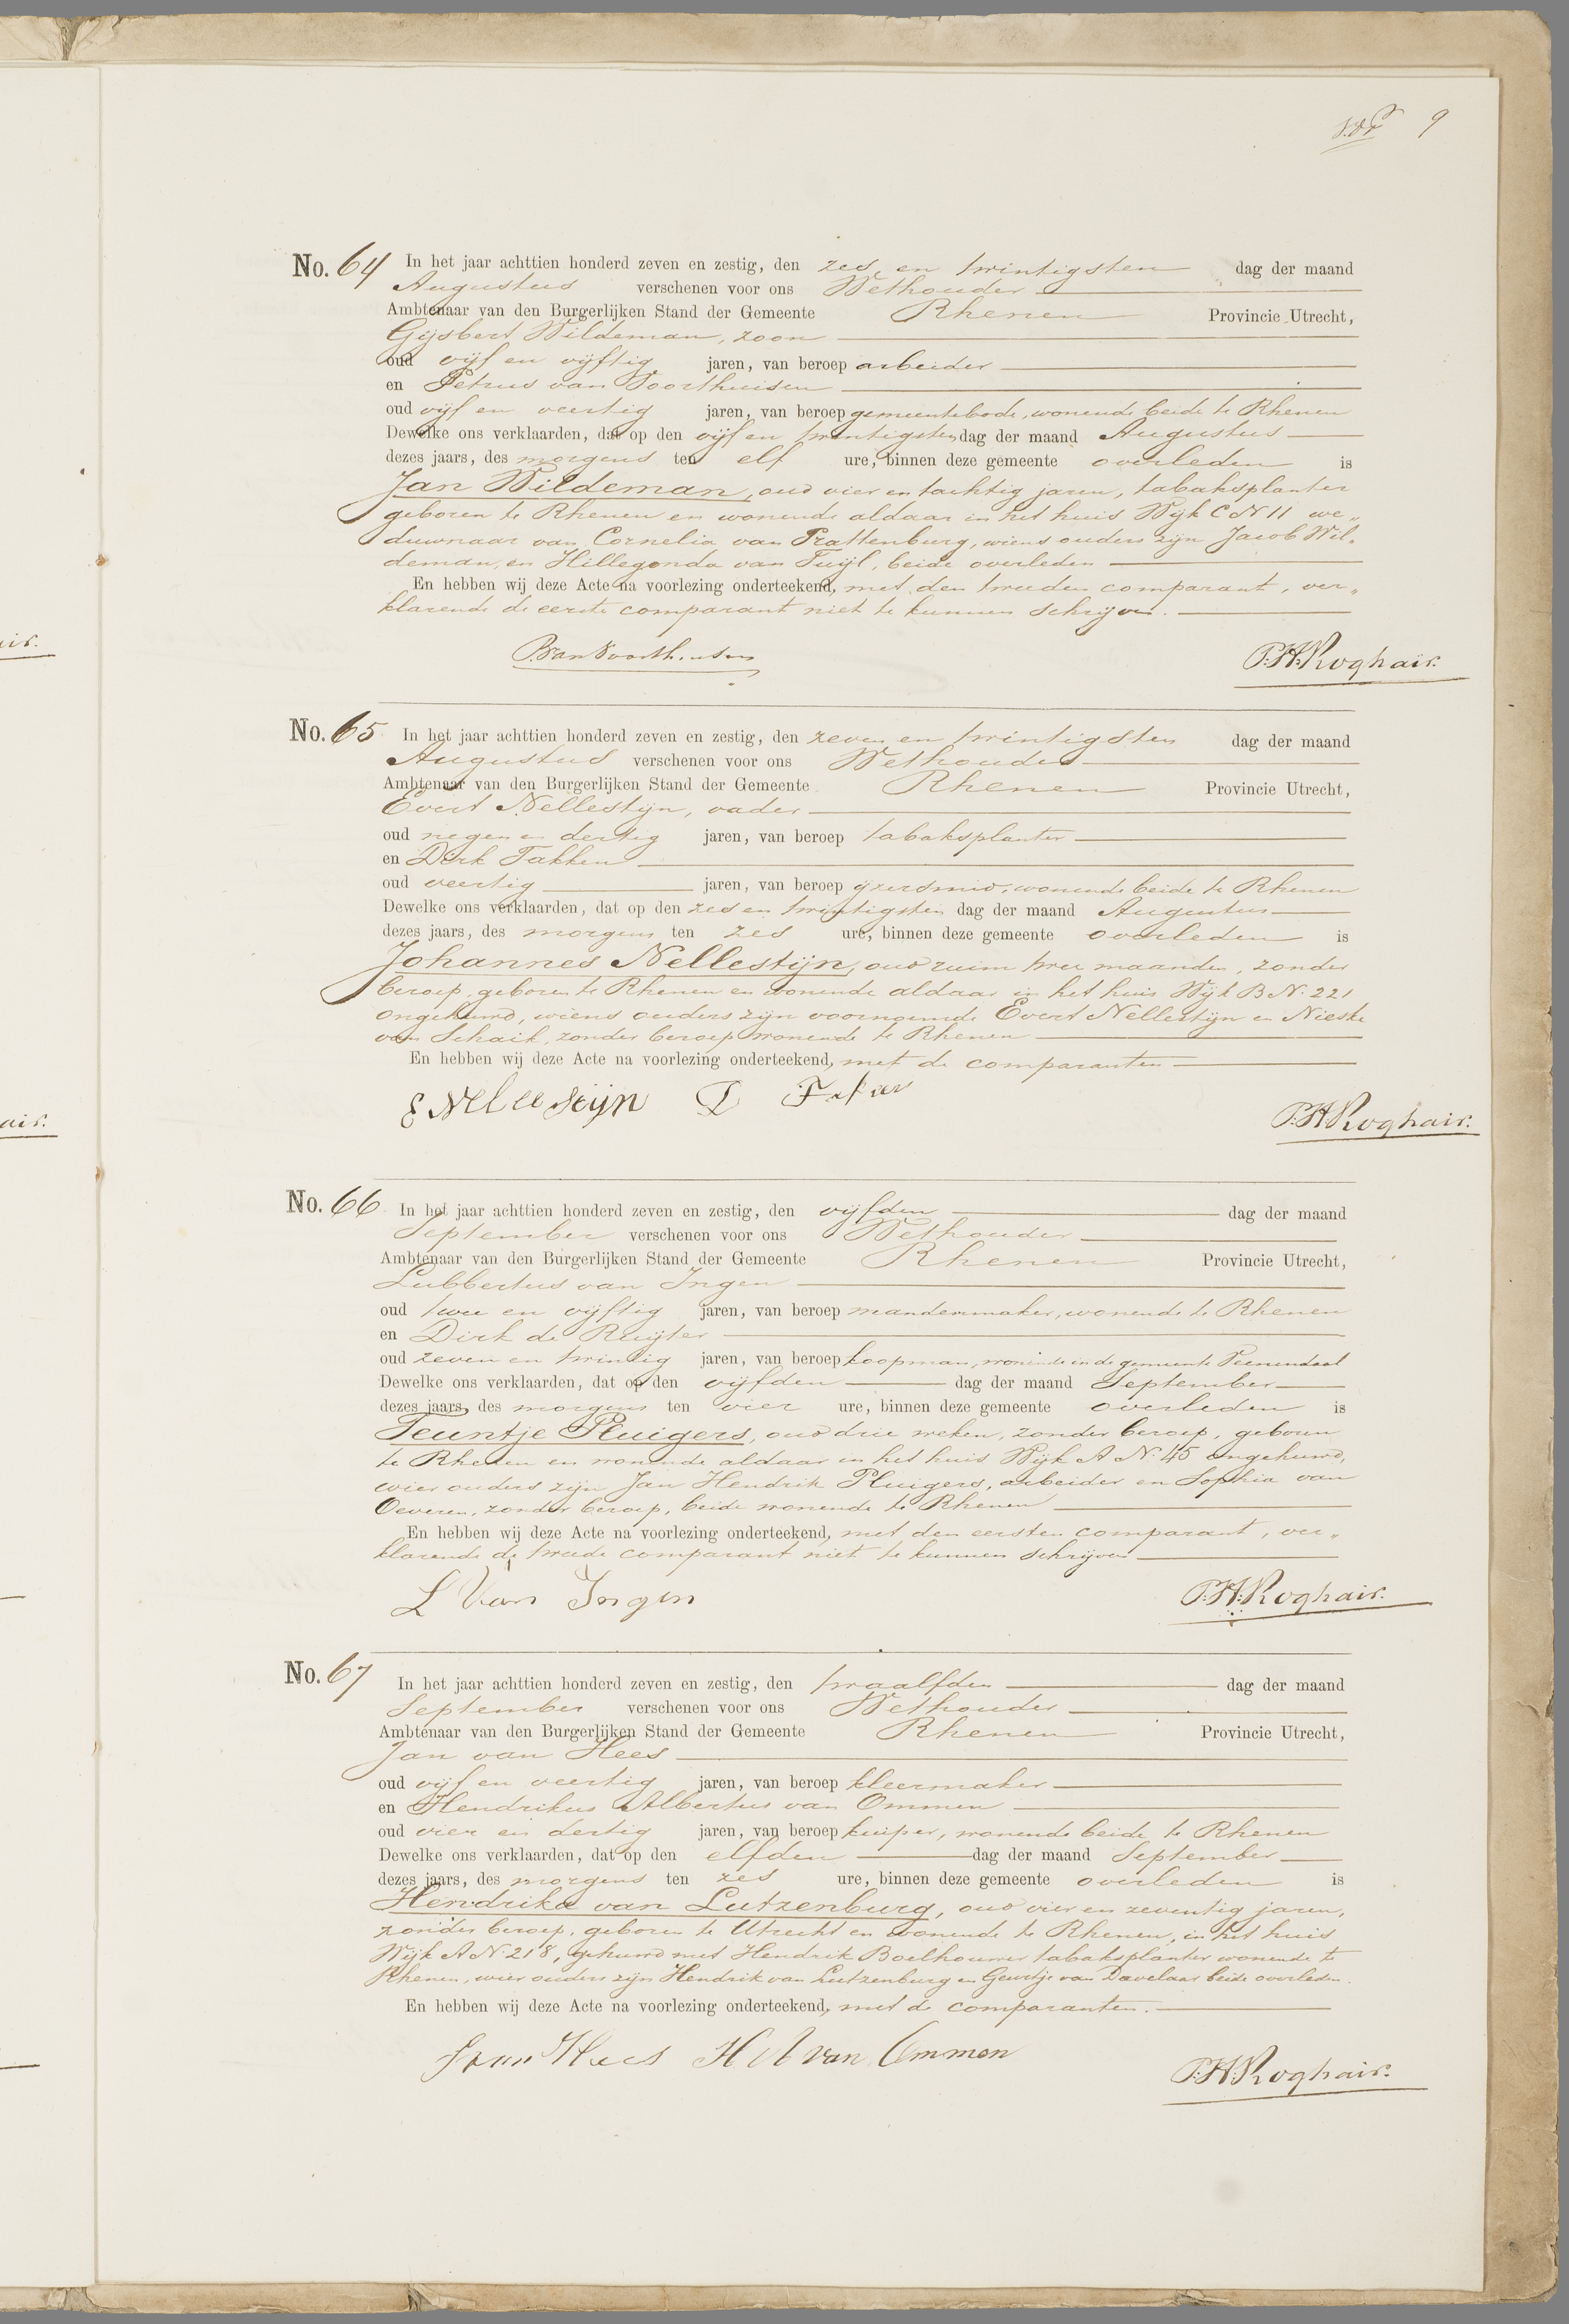 9
No. 64 In het jaar achttien honderd zeven en zestig, den zes en twintigsten dag der maand
Augustus verschenen voor ons Wethouder
Ambtenaar van den Burgerlijken Stand der Gemeente Rhenen Provincie Utrecht,
Gijsbert Wildeman, zoon
oud vijf en vijftig jaren, van beroep arbeider
en Petrus van Voorthuisen
oud vijf en veertig jaren, van beroep gemeentebode, wonende beide te Rhenen
Dewelke ons verklaarden, dat op den vijf en twintigsten dag der maand Augustus
dezes jaars, des morgens ten elf ure, binnen deze gemeente overleden is
Jan Wildeman, oud vier en tachtig jaren, tabaksplanter
geboren te Rhenen en wonende aldaar in het huis Wijk C N 11 we„
duwnaar van Cornelia van Prattenburg, wiens ouders zijn Jacob Wil„
deman, en Hillegonda van Tuijl, beide overleden
En hebben wij deze Acte na voorlezing onderteekend, met den tweeden comparant, ver„
klarende de eerste comparant niet te kunnen schrijven.
P. van Voorthuisen P.H. Roghair.
No. 65 In het jaar achttien honderd zeven en zestig, den zeven en twintigsten dag der maand
Augustus verschenen voor ons Wethouder
Ambtenaar van den Burgerlijken Stand der Gemeente Rhenen Provincie Utrecht,
Evert Nellestijn, vader
oud negen en dertig jaren, van beroep tabaksplanter
en Dirk Takken
oud veertig jaren, van beroep ijzersmid, wonende beide te Rhenen
Dewelke ons verklaarden, dat op den zes en twintigsten dag der maand Augustus
dezes jaars, des morgens ten zes ure, binnen deze gemeente overleden is
Johannes Nellestijn, oud ruim twee maanden, zonder
beroep, geboren te Rhenen en wonende aldaar in het huis Wijk B N. 221
ongehuwd, wiens ouders zijn voornoemde Evert Nellestijn en Nieske
van Schaik, zonder beroep wonende te Rhenen
En hebben wij deze Acte na voorlezing onderteekend, met de comparanten
E Nelleseijn D P.H. Roghair.
No. 66 In het jaar achttien honderd zeven en zestig, den vijfden dag der maand
September verschenen voor ons Wethouder
Ambtenaar van den Burgerlijken Stand der Gemeente Rhenen Provincie Utrecht,
Lubbertus van Ingen
oud twee en vijftig jaren, van beroep mandenmaker, wonende te Rhenen
en Dirk de Ruijter
oud zeven en twintig jaren, van beroep koopman, wonende in de gemeente Veenendaal
Dewelke ons verklaarden, dat op den vijfden dag der maand September
dezes jaars, des morgens ten vier ure, binnen deze gemeente overleden is
Teuntje Pluigers, oud drie weken, zonder beroep, geboren
te Rhenen en wonende aldaar in het huis Wijk A N. 45 ongehuwd,
wier ouders zijn Jan Hendrik Pluigers, arbeider en Sophia van
Oeveren, zonder beroep, beide wonende te Rhenen
En hebben wij deze Acte na voorlezing onderteekend, met den eersten comparant, ver„
klarende de tweede comparant niet te kunnen schrijven
L Van Ingen P.H. Roghair.
No. 67 In het jaar achttien honderd zeven en zestig, den twaalfden dag der maand
September verschenen voor ons Wethouder
Ambtenaar van den Burgerlijken Stand der Gemeente Rhenen Provincie Utrecht,
Jan van Hees
oud vijf en veertig jaren, van beroep kleermaker
en Hendrikus Albertus van Ommen
oud vier en dertig jaren, van beroep kuiper, wonende beide te Rhenen
Dewelke ons verklaarden, dat op den elfden dag der maand September
dezes jaars, des morgens ten zes ure, binnen deze gemeente overleden is
Hendrika van Lutzenburg, oud vier en zeventig jaren,
zonder beroep, geboren te Utrecht en wonende te Rhenen, in het huis
Wijk A N 218, gehuwd met Hendrik Boelhouwer tabaksplanter wonende te
Rhenen, wier ouders zijn Hendrik van Lutzenburg en Geurtje van Davelaar beide overleden.
En hebben wij deze Acte na voorlezing onderteekend, met de comparanten.
J van Hees H A van Ommen P.H. Roghair.